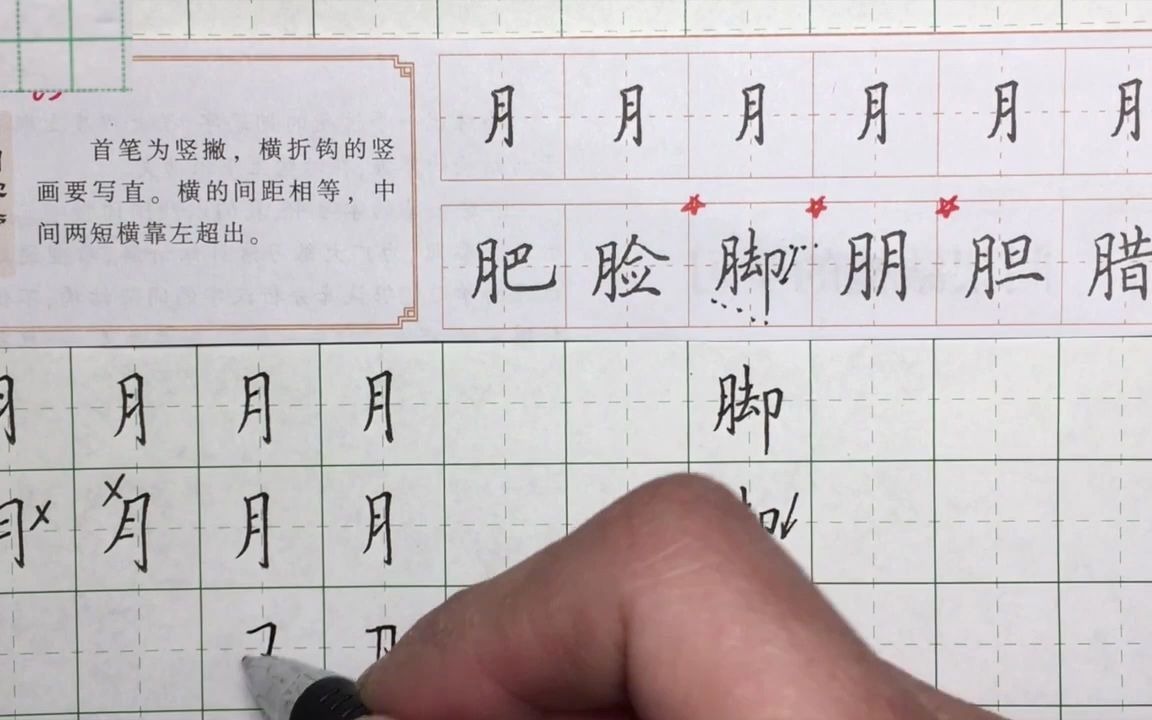 首笔为竖撇，横折钩的竖
画要写直。横的间距相等，中
间两短横靠左超出。
月 月 月 月 月 月
肥 脸 脚 朋 胆 腊
月 月 月 月 脚
月 x x 月 月 月